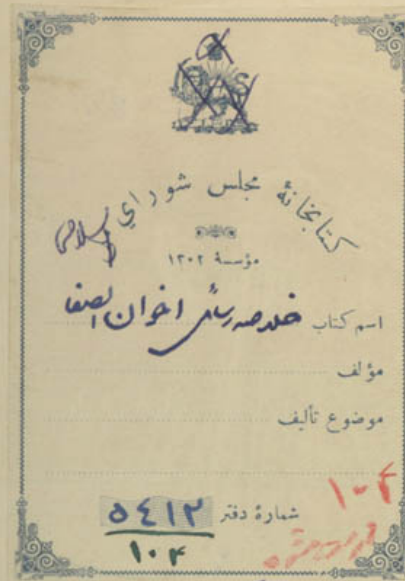 کتابخانهٔ مجلس شورای اسلامی
مؤسسهٔ ۱۳۰۲
اسم کتاب خلاصه رسائل اخوان الصفا
مؤلف
موضوع تألیف
شمارهٔ دفتر ۵٤۱۲
۱۰۴
۱۰۴